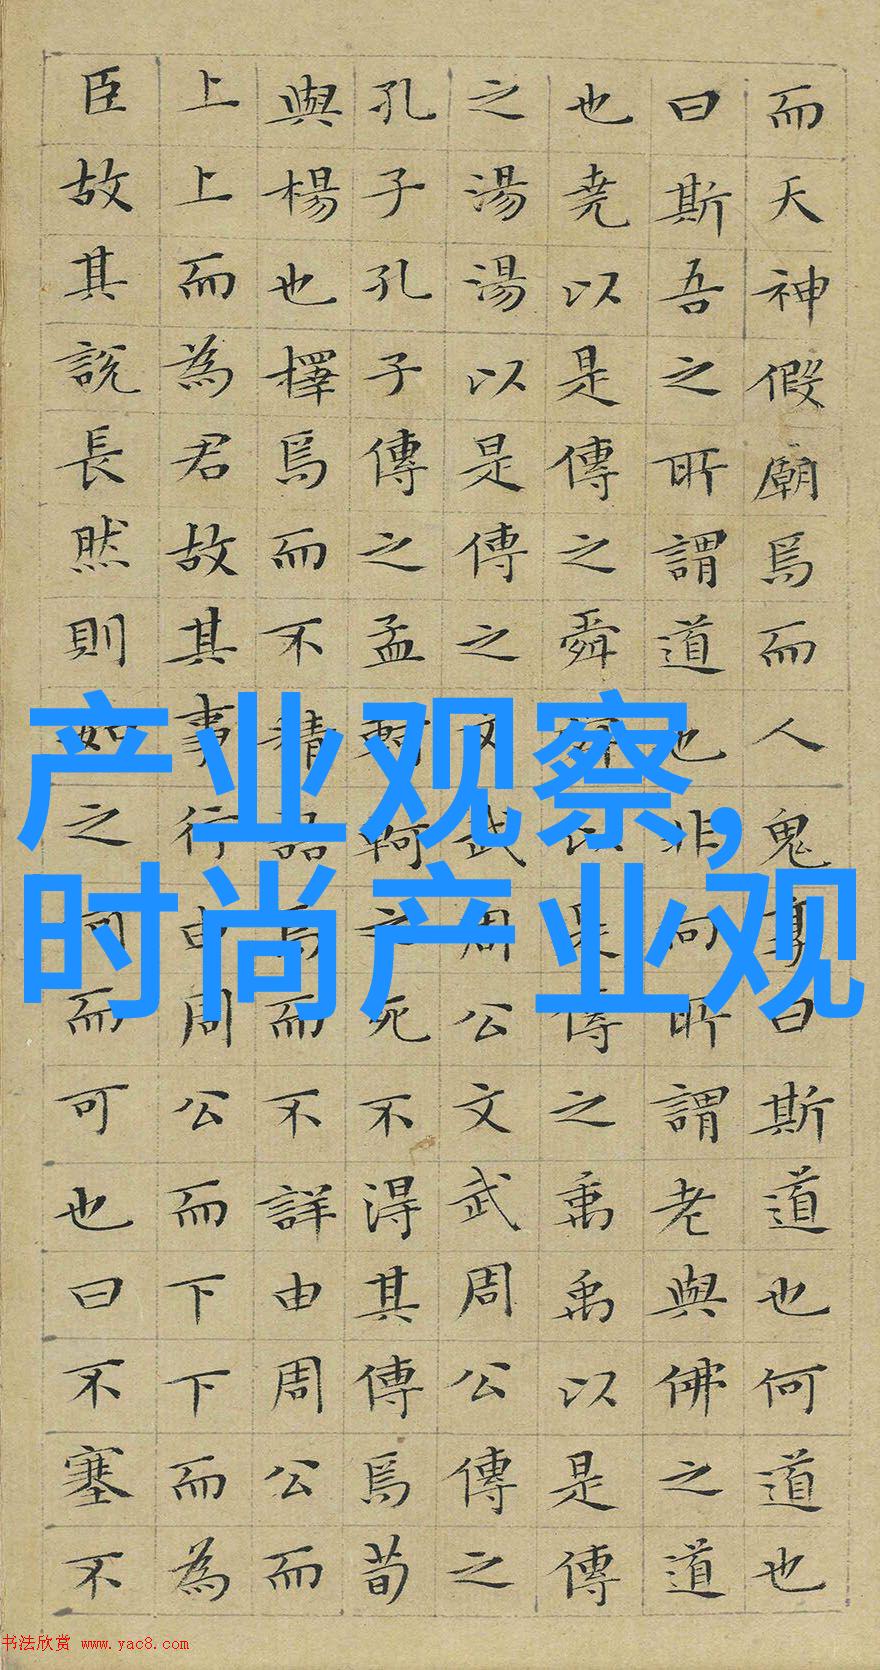 而天神假廟焉而人鬼享曰斯道也何道也
曰斯吾之所謂道也非向所謂老與佛之道
也堯以是傳之舜舜以是傳之禹禹以是傳
之湯湯以是傳之文武周公文武周公傳之
孔子孔子傳之孟軻軻之死不得其傳焉荀
與楊也擇焉而不精語焉而不詳由周公而
上上而為君故其事行由周公而下下而為
臣故其說長然則如之何而可也曰不塞不
产业观察,
时尚产业观
书法欣赏 www.yac8.com